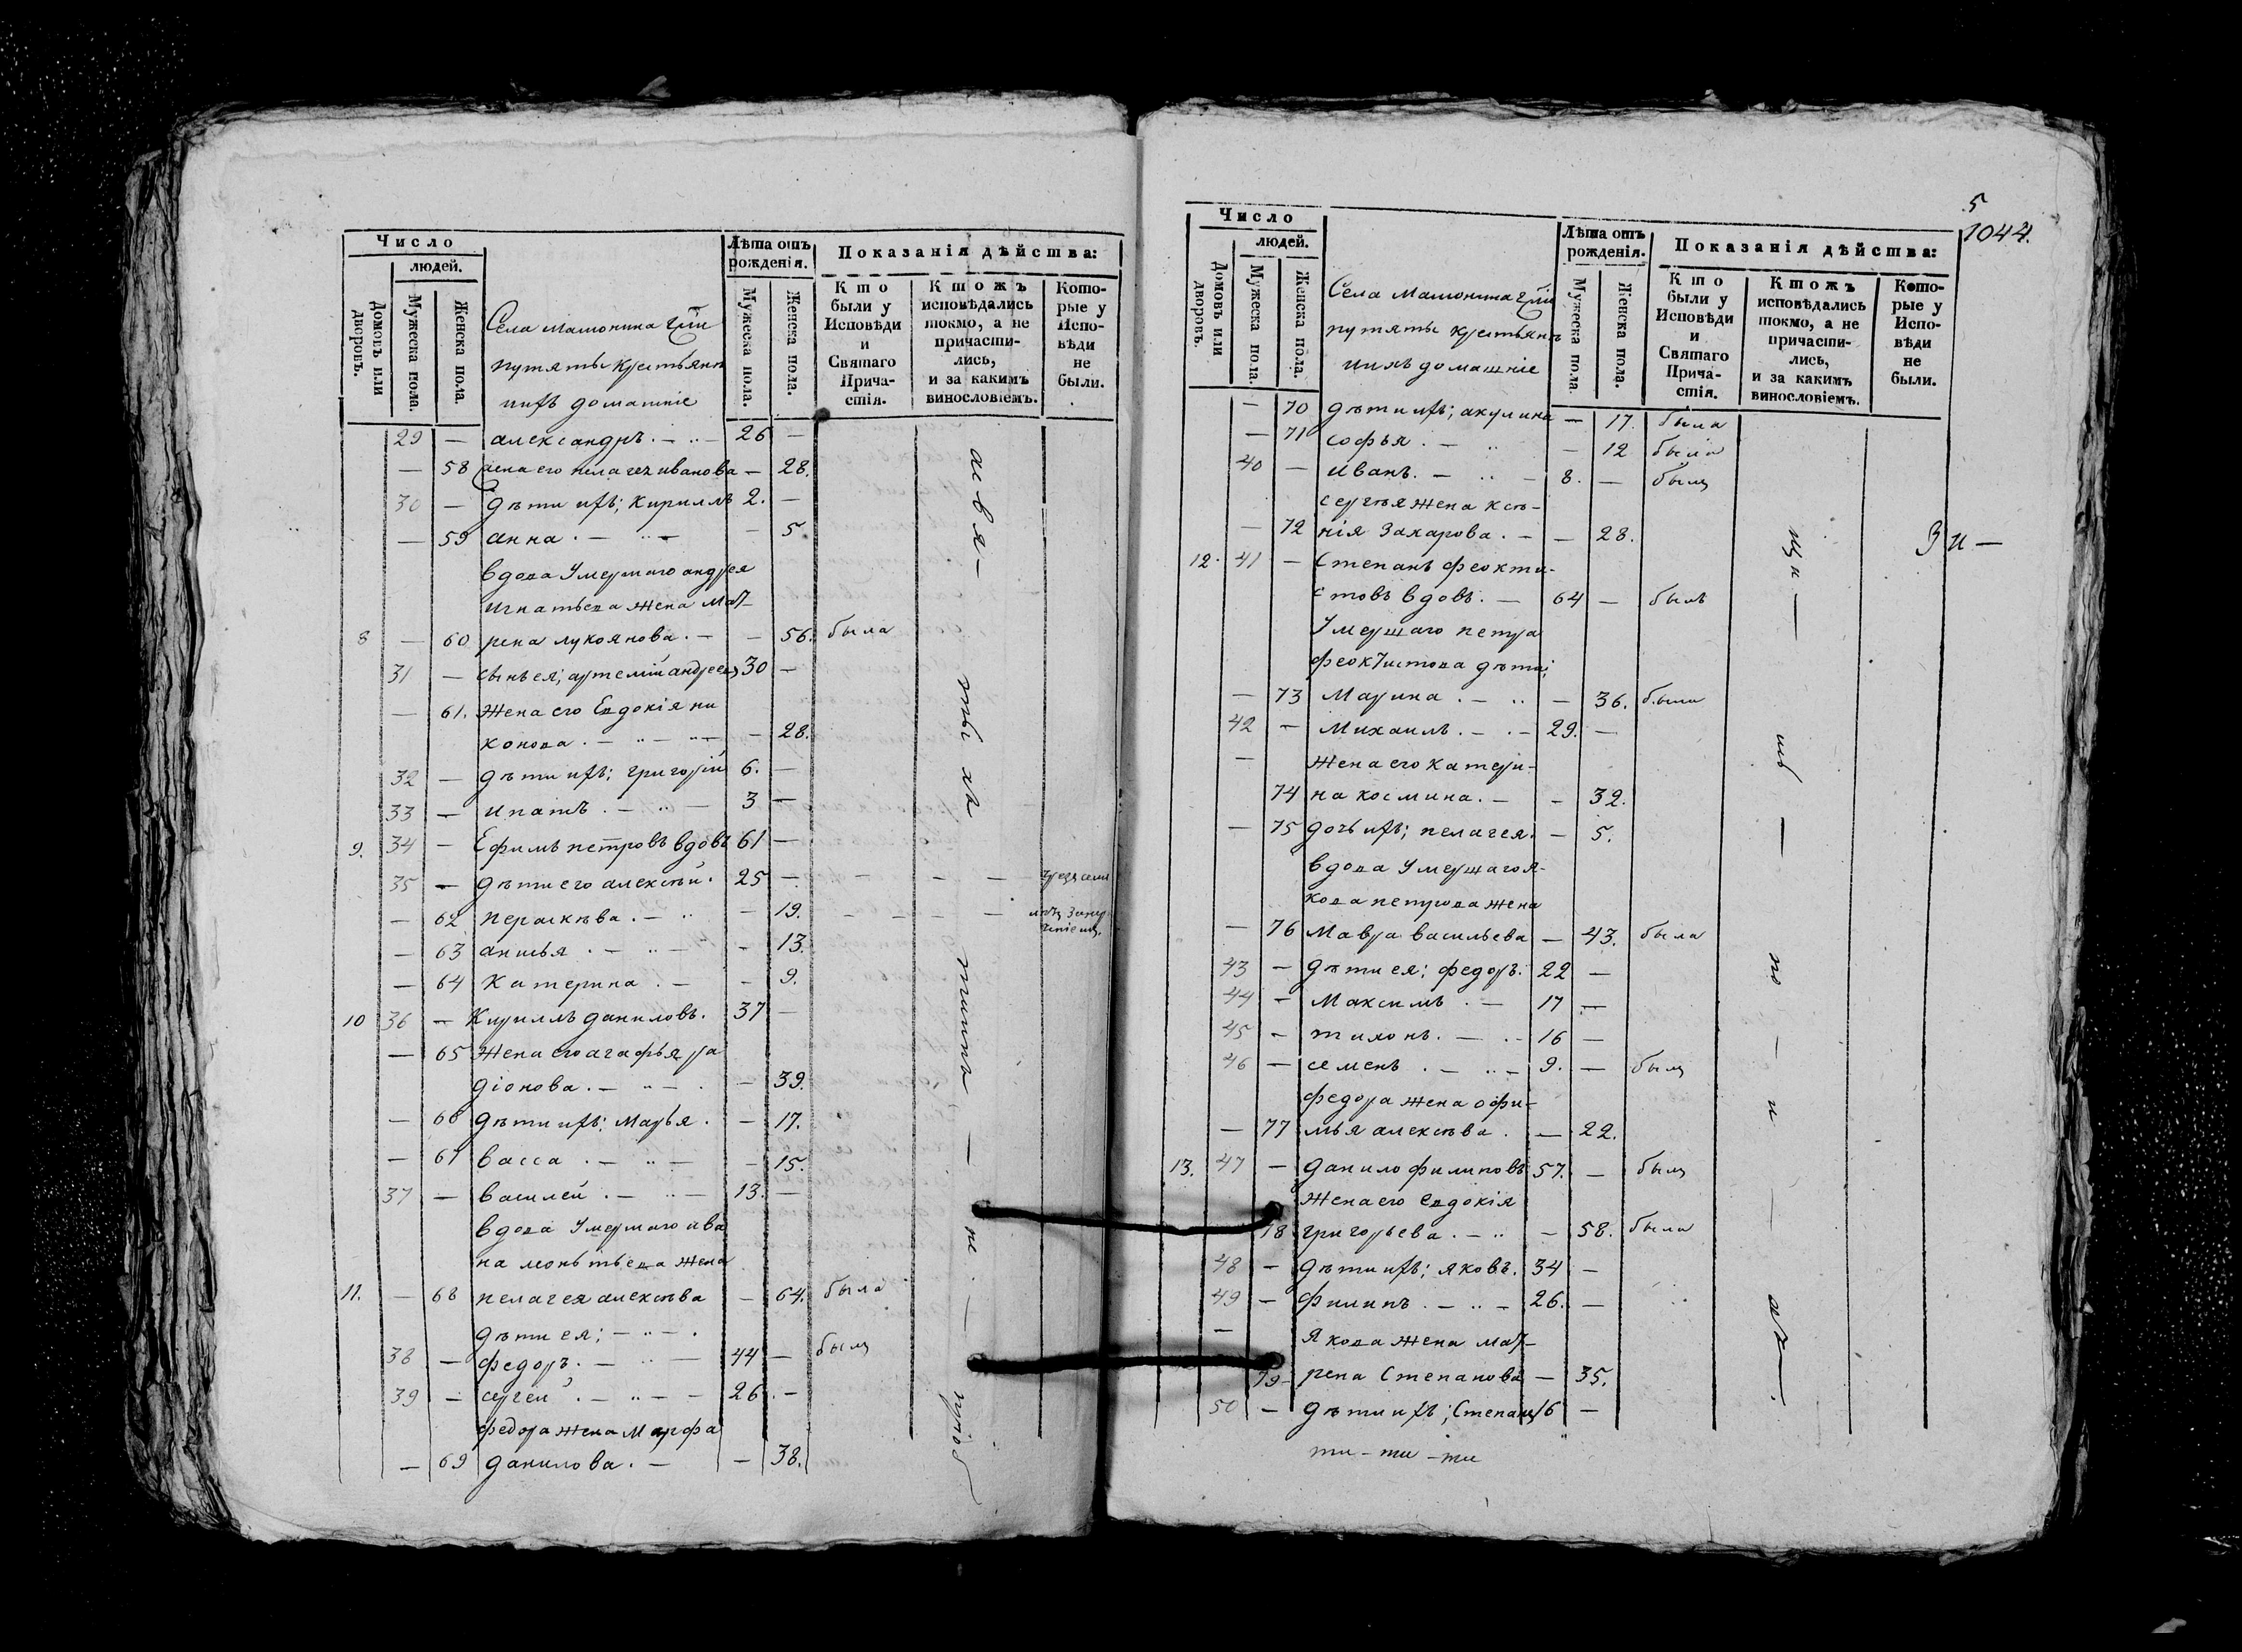 Число
людей.
Домовъ или дворовъ.
Мужеска пола.
Женска пола.
Села мамонина гпжи
путяты крестьяне
ихъ домашніе
Лѣта отъ рожденія.
Мужеска пола.
Женска пола.
Показанія дѣйства:
Кто были у Исповѣди и Святаго Причастія.
Ктожъ исповѣдались токмо, а не причастились, и за какимъ винословіемъ.
Которые у Исповѣди не были.
29 — александръ. — 26 —
— 58 жена его пелагея иванова — 28.
30 — дѣти ихъ; Кириллъ 2. —
— 59 анна. — — 5
вдова Умершаго андрея
игнатьева жена мат-
8 — 60 рена лукоянова. — — 56. была
31 — сынъ ея; артемій андреевъ 30 —
— 61. жена его Евдокія ни
конова. — — 28.
32 — дѣти ихъ; григорій 6. —
33 — ипатъ. — 3 —
9. 34 — Ефимъ петровъ вдовъ 61 —
35 — дѣти его алексѣй. 25 —
— 62 пераскѣва. — — 19. —
— 63 анисья. — — 13.
— 64 Катерина. — — 9.
10 36 — Кириллъ даниловъ. 37 —
— 65 жена его агафья ра
діонова. — — 39.
— 66 дѣти ихъ: Марья. — 17.
— 67 васса. — — 15.
37 — василей. — 13. —
вдова Умершаго ива
на леонтьева жена
11. — 68 пелагея алексѣва — 64. была
дѣти ея; —
38 — федоръ. — 44 — былъ
39 — сергей. — 26. —
федора жена Марфа
— 69 данилова. — — 38.
5
1044.
Число
людей.
Домовъ или дворовъ.
Мужеска пола.
Женска пола.
Села мамонина гпжи
путяты крестьянъ
ихъ домашніе
Лѣта отъ рожденія.
Мужеска пола
Женска пола.
Показанія дѣйства:
Кто были у Исповѣди и Святаго Причастія.
Ктожъ исповѣдались токмо, а не причастились, и за какимъ винословіемъ.
Которые у Исповѣди не были.
— 70 дѣти ихъ; акулина — 17. была
— 71 софья. — — 12 была
40 — иванъ. — 8. — былъ
сергѣя жена ксѣ-
— 72 нія Захарова. — — 28.
12. 41 — Степанъ феокти-
стовъ вдовъ. — 64 — былъ
Умершаго петра
феоктистова дѣти;
— 73 Марина. — — 36. была
42 — Михаилъ. — 29. —
— жена его катери-
74 на космина. — — 32.
— 75 дочь ихъ; пелагея. — 5.
вдова Умершаго я-
кова петрова жена
— 76 Мавра васильева — 43. была
43 — дѣти ея; федоръ. 22 —
44 — Максимъ. — 17 —
45 — тихонъ. — 16 —
46 — семенъ. — 9. — былъ
федора жена офи-
— 77 мья алексѣва. — 22.
13. 47 — данило филиповъ 57. — былъ
жена его Евдокія
78 григорьева. — — 58. была
48 — дѣти ихъ; яковъ. 34 —
49 — филипъ. — 26. —
— Якова жена мат-
79 рена Степанова — 35.
50 — дѣти ихъ; Степанъ 16 —
ти - ти - ти